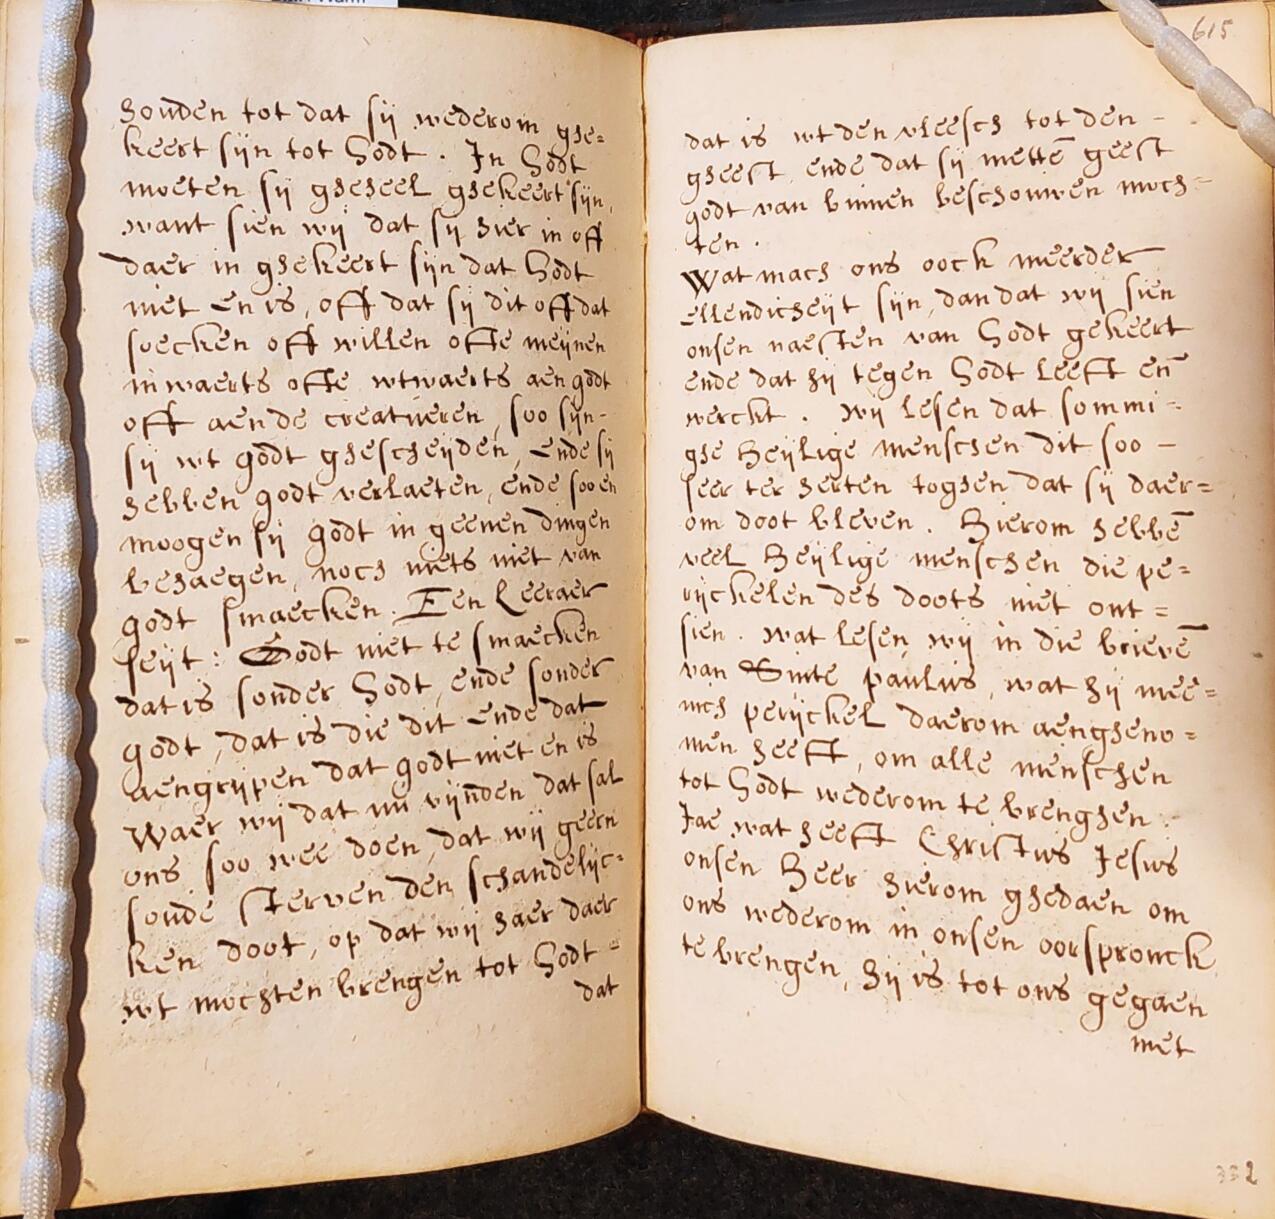 sonden tot dat sij wederom ghe=
keert sijn tot Godt. In Godt
moeten sij gheheel ghekeert sijn,
want sien wij dat sij hier in off
daer in ghekeert sijn dat Godt
niet en is, off dat sij dit off dat
soecken off willen ofte meijnen
inwaerts ofte wtwaerts aen godt
off aen de creatueren, soo sijn-
sij wt godt ghescheijden, ende sij
hebben godt verlaeten, ende soo en
moogen sij godt in geenen dingen
behaegen, noch niets niet van
godt smaecken. Een Leeraer
seijt: Godt niet te smaecken
dat is sonder Godt, ende sonder
godt, dat is die dit ende dat
aengrijpen dat godt niet en is
Waer wij dat nu vijnden dat sal
ons soo wee doen, dat wij geern
soude sterven den schandelijc=
ken doot, op dat wij haer daer
wt mochten brengen tot Godt =
dat
615
dat is wt den vleesch tot den -
gheest, ende dat sij mettē geest
godt van binnen beschouwen moch=
ten.
Wat mach ons oock meerder
ellendicheijt sijn, dan dat wij sien
onsen naesten van Godt gekeert
ende dat hij tegen Godt leeft en̄
werckt. Wij lesen dat sommi=
ghe Heijlige menschen dit soo -
seer ter herten toghen dat sij daer=
om doot bleven. Hierom hebbē
veel Heijlige menschen die pe=
rijckelen des doots niet ont=
sien. Wat lesen wij in die brievē
van Sinte paulus, wat hij mee=
nich perijckel daerom aengheno=
men heeft, om alle menschen
tot Godt wederom te brenghen.
Jae wat heeft Christus Jesus
onsen Heer hierom ghedaen om
ons wederom in onsen oorspronck
te brengen, hij is tot ons gegaen
met
332